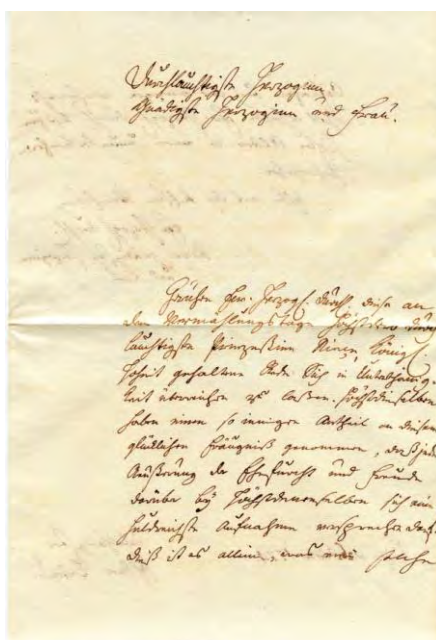 Durchlauchtigste Herzoginn
Gnädigste Herzoginn und Frau.
Geruhen Ew. Herzogl. Durchl. diese an
dem Vermählungstage Höchstdero Durch
lauchtigsten Prinzeßinn Königl.
Hoheit gehaltene Rede Sich in Unterthänig-
keit überreichen zu laßen. Höchstdieselben
haben einen so innigen Antheil an diesem
glücklichen Eräugniß genommen, daß jede
Äußerung der Ehrfurcht und Freude
darüber bey Höchstdenenselben sich eine
huldreichste Aufnahme versprechen darf.
Dieß ist es allein, was